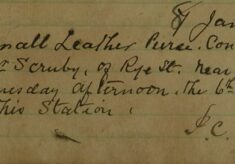 8/ Jan
mall Leather Purse. Con
Scruby, of Rye St. near
uesday afternoon. the 6th
this Station.
P.C.